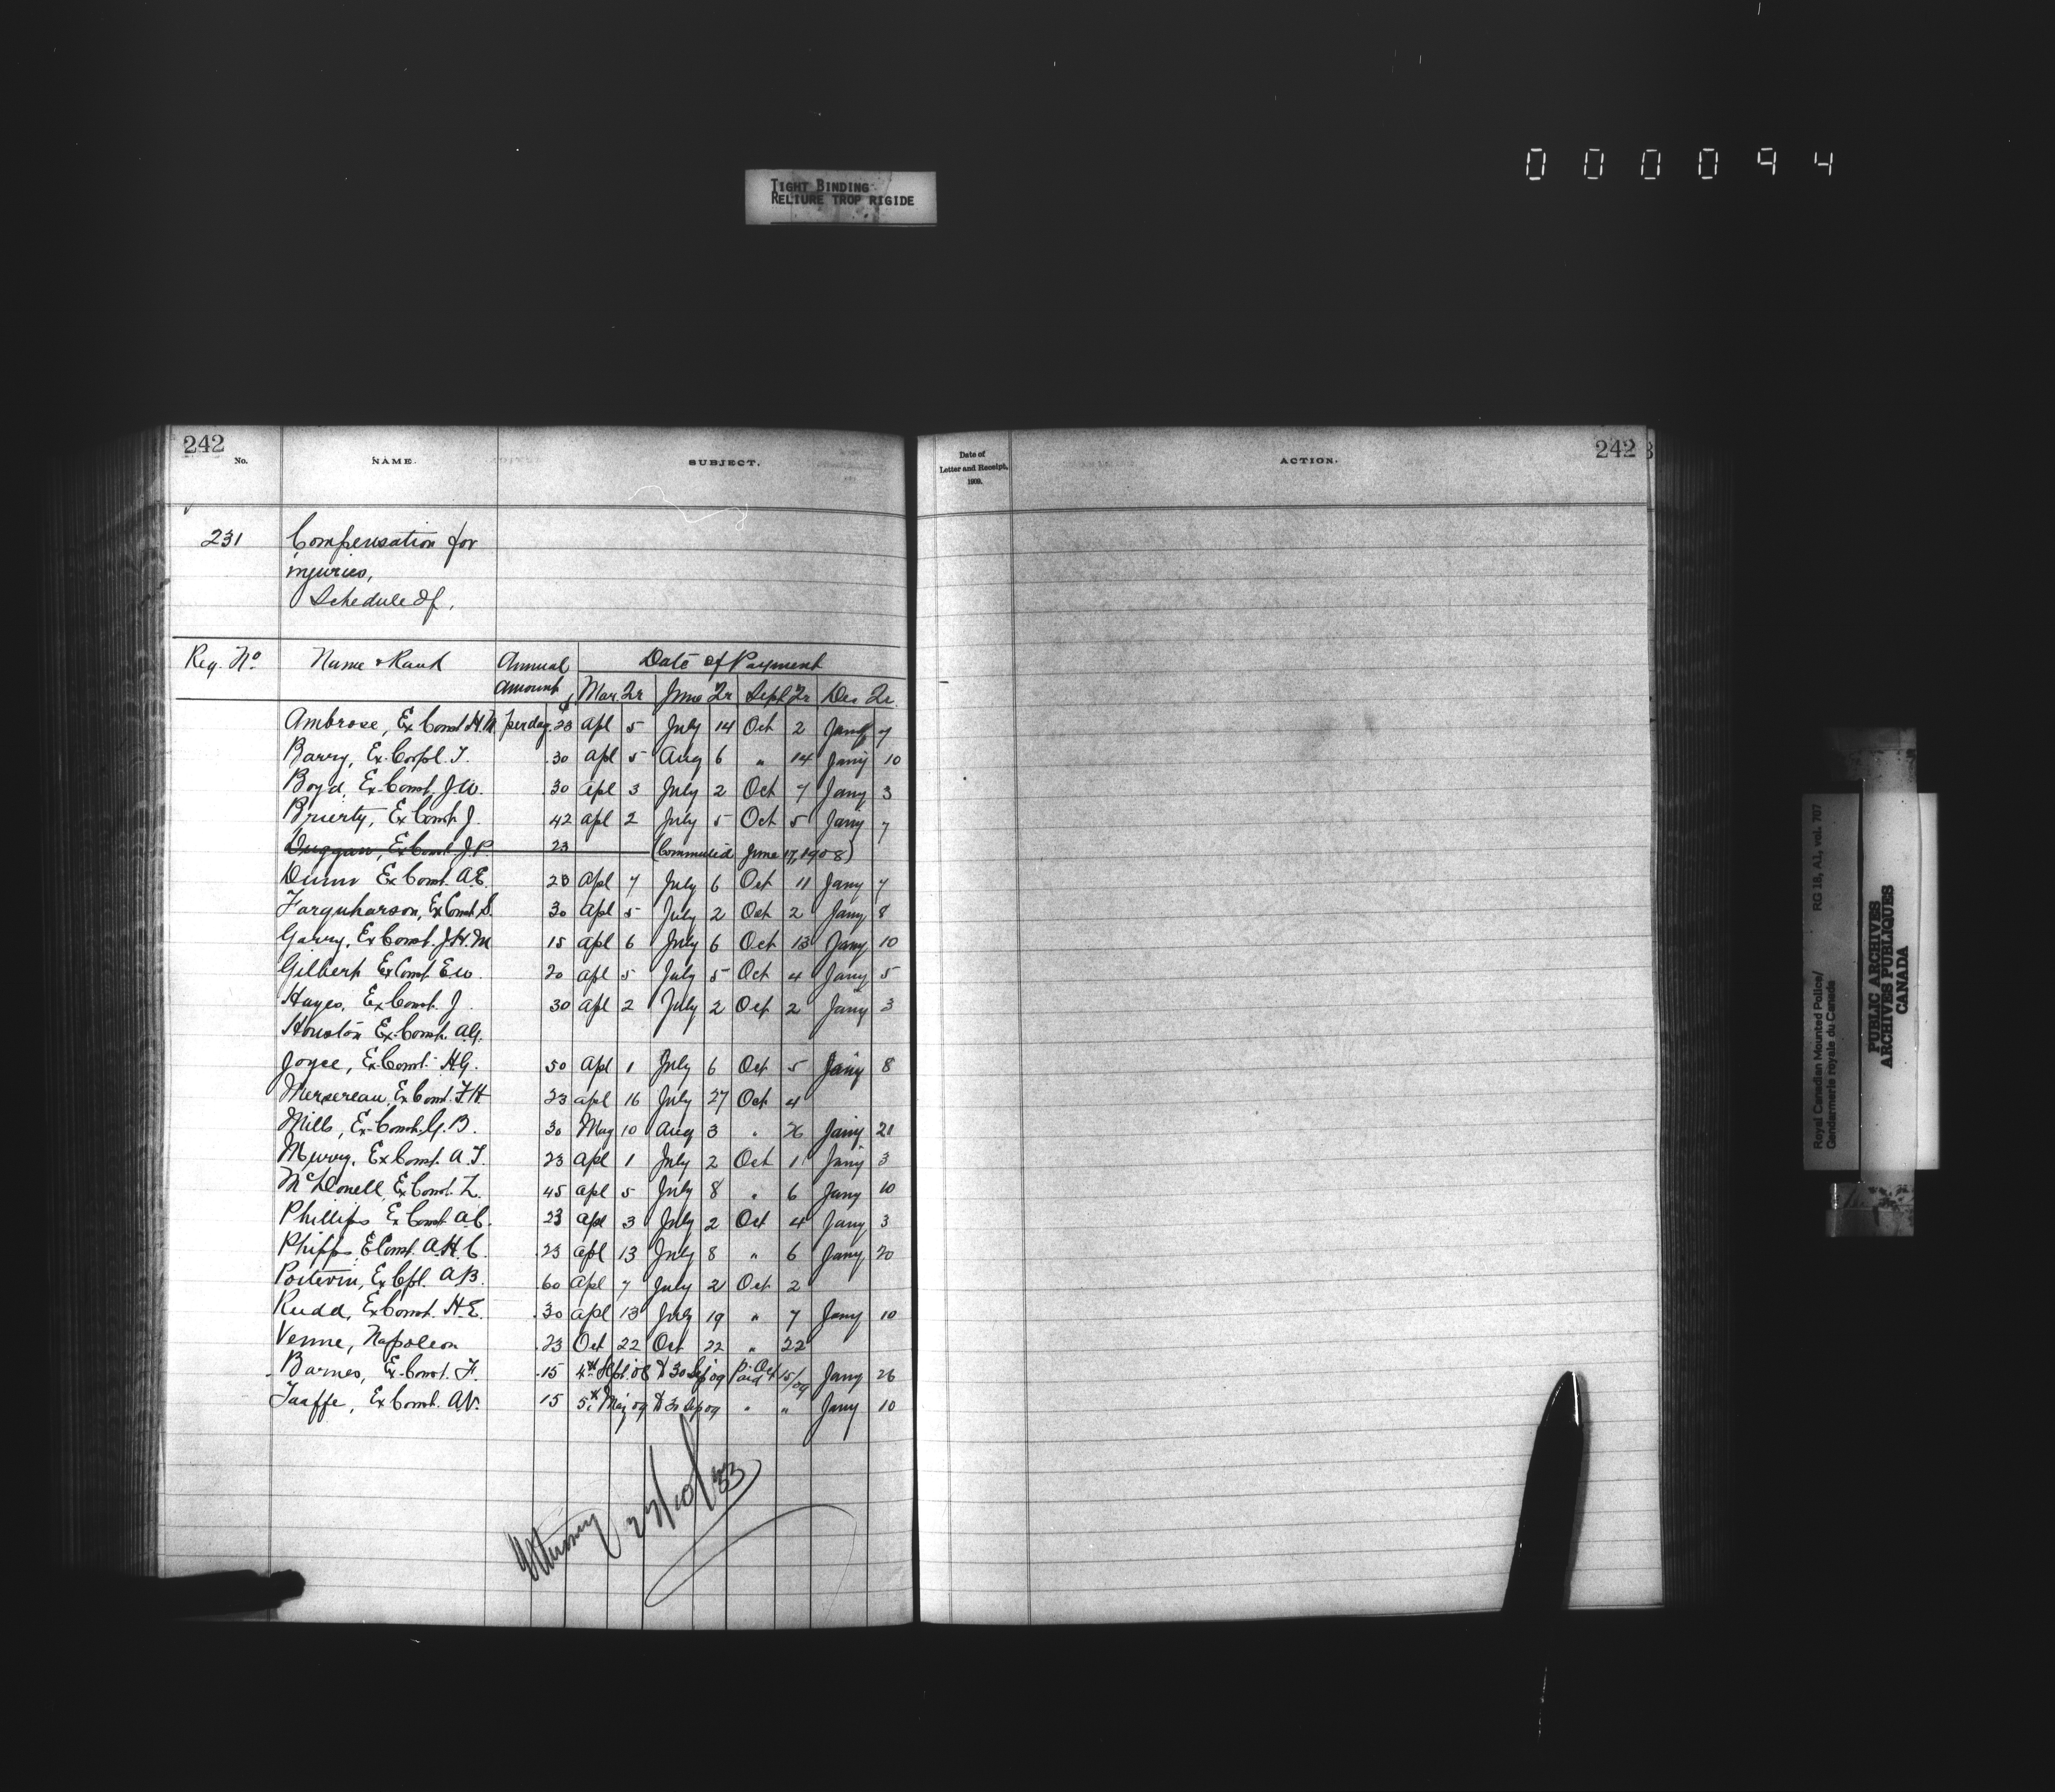 000094
TIGHT BINDING
RELIURE TROP RIGIDE
242
No. NAME. SUBJECT.
231 Compensation for
injuries,
Schedule of,
Reg. No. Name & Rank Annual Date of Payment
Amount Mar Qr June Qr Sept Qr Dec Qr.
Ambrose, Ex Const. H.M. per day .23 Apl 5 July 14 Oct 2 Jany 7
Barry, Ex-Corpl. T. .30 Apl 5 Aug 6 " 14 Jany 10
Boyd, Ex-Const. J.W. .30 Apl 3 July 2 Oct 7 Jany 3
Brierty, Ex Const J. 42 Apl 2 July 5 Oct 5 Jany 7
Duggan, Ex Const J.P. 23 (Commuted June 17, 1908)
Dunn Ex Const. A.E. 23 Apl 7 July 6 Oct 11 Jany 7
Farquharson, Ex Const. S. 30 Apl 5 July 2 Oct 2 Jany 8
Garry, Ex Const. J.H.M 15 Apl 6 July 6 Oct 13 Jany 10
Gilbert Ex Const. E.W. 20 Apl 5 July 5 Oct 4 Jany 5
Hayes, Ex Const. J. 30 Apl 2 July 2 Oct 2 Jany 3
Houston Ex-Const. A.G.
Joyce, Ex-Const. H.G. 50 Apl 1 July 6 Oct 5 Jany 8
Mersereau, Ex Const. F.H. 23 Apl 16 July 27 Oct 4
Mills, Ex-Const. G.B. 30 May 10 Aug 3 " 26 Jany 21
Murray, Ex Const. A.T. 23 Apl 1 July 2 Oct 1 Jany 3
McDonell, Ex Const. L. 45 Apl 5 July 8 " 6 Jany 10
Phillips Ex Const A.C. 23 Apl 3 July 2 Oct 4 Jany 3
Phipps E Const. A.H.C. .23 Apl 13 July 8 " 6 Jany 20
Poitevin, Ex Cpl. A.B. 60 Apl 7 July 2 Oct 2
Rudd, Ex Const. H.E. .30 Apl 13 July 19 " 7 Jany 10
Venne, Napoleon .23 Oct 22 Oct 22 " 22
Barnes, Ex-Const. F. .15 4th Sept. 08 to 30 Sep 09 Paid Oct 15/09 Jany 26
Taaffe, Ex Const. A.V. 15 5th May 09 to 30 Sep 09 " " Jany 10
27/10/33
Date of
Letter and Receipt,
1909.
ACTION. 242
Royal Canadian Mounted Police/
Gendarmerie royale du Canada
RG 18, A1, vol. 707
PUBLIC ARCHIVES
ARCHIVES PUBLIQUES
CANADA